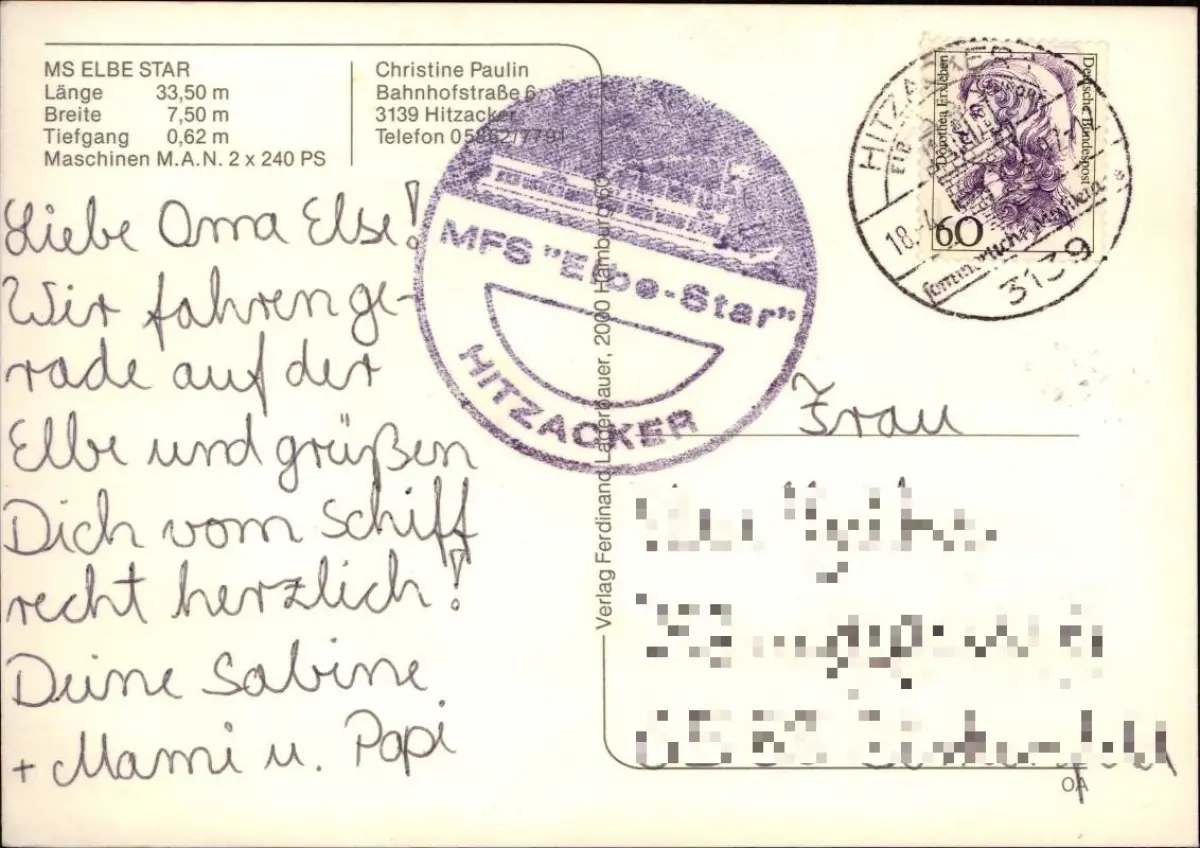 MS ELBE STAR
Länge 33,50 m
Breite 7,50 m
Tiefgang 0,62 m
Maschinen M.A.N. 2 x 240 PS
Christine Paulin
Bahnhofstraße 6
3139 Hitzacker
Telefon 05862/7791
Liebe Oma Else!
Wir fahren ge-
rade auf der
Elbe und grüßen
Dich vom Schiff
recht herzlich!
Deine Sabine
+ Mami u. Papi
MFS "Elbe-Star"
HITZACKER
Verlag Ferdinand Lagerbauer, 2000 Hamburg 50
HITZACKER
18.
3139
Dorothea Erxleben
Deutsche Bundespost
60
Frau
OA